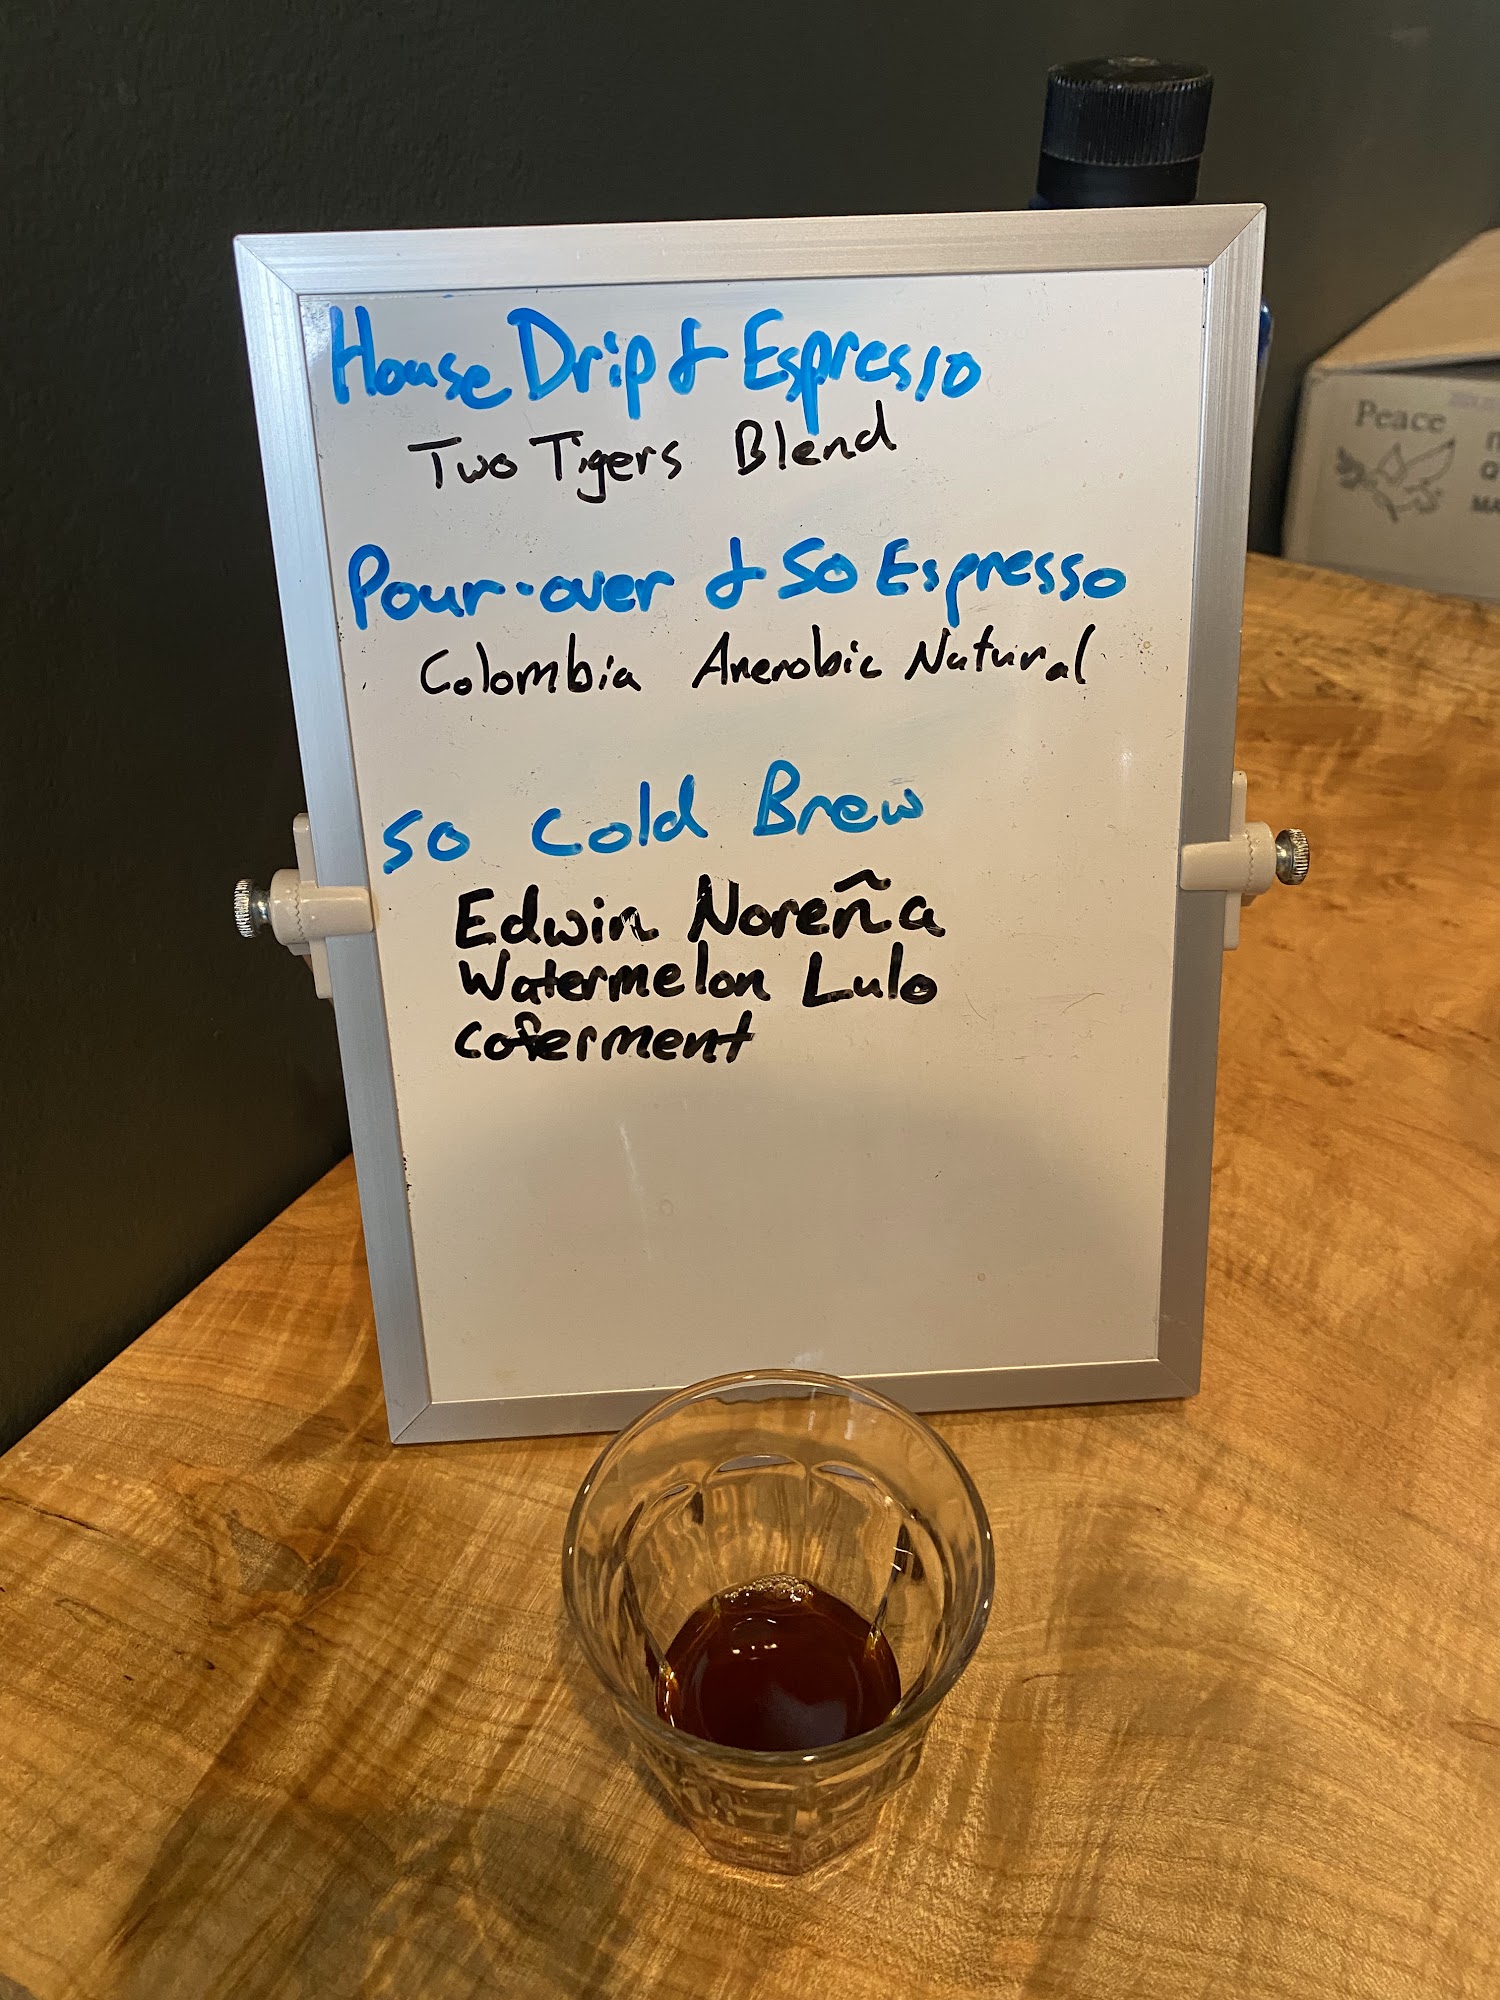 House Drip & Espresso
Two Tigers Blend
Pour-over & SO Espresso
Colombia Anerobic Natural
SO Cold Brew
Edwin Noreña
Watermelon Lulo
coferment
Peace